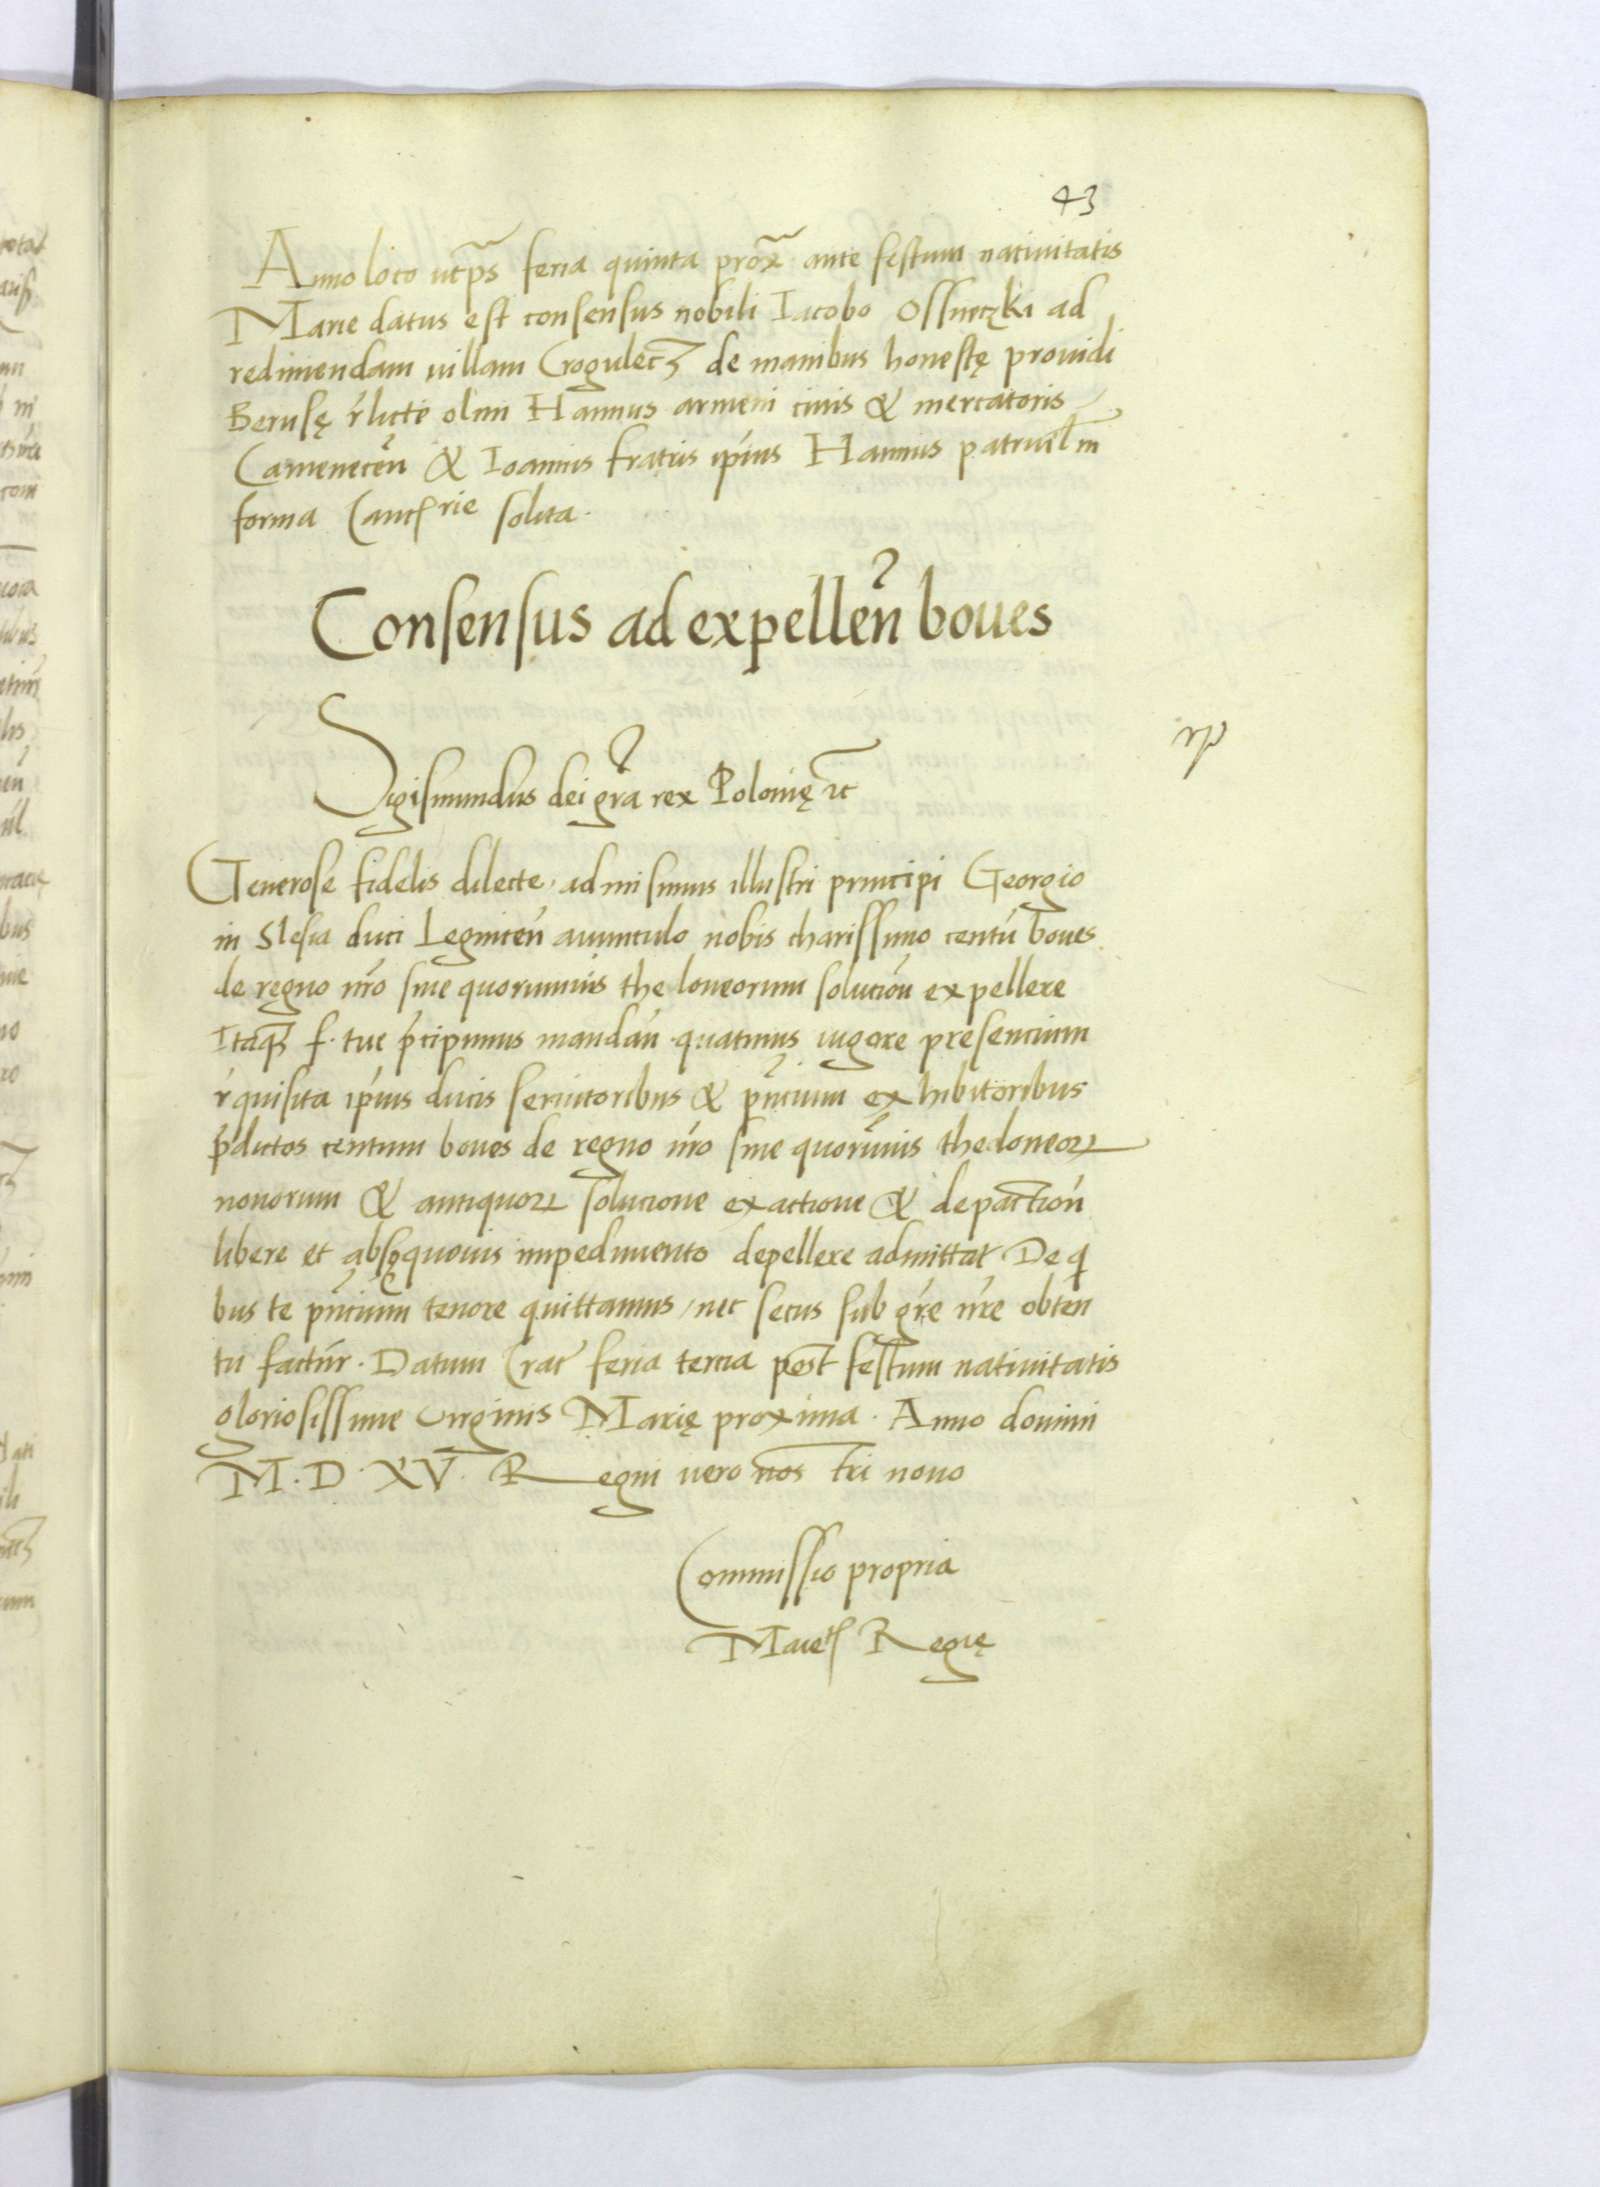 43
Anno loco utp̃s feria quinta prox̃ ante festum natiuitatis
Marie datus est consensus nobili Iacobo Ossuetzki ad
redimendam uillam Crogulecz de manibus honestę prouidi
Berusę r̃licte olim Hannus armeni ciuis & mercatoris
Camenecen̄ & Ioannis fratris ip̄ius Hannus patruel in
forma Canc̃rie solita.
Consensus ad expellen̄ boues
Sigismundus dei gr̄a rex Polonię ꝛc
Generose fidelis dilecte, admisimus illustri principi Georgio
in Slesia duci Legnicen̄ auunculo nobis charissimo centū boues
de regno nr̄o sine quorumuis theloneorum solucion̄ expellere
Itaqꝫ f. tue p̄cipimus mandan̄ quatinus uigore presencium
r̃quisita ip̄ius ducis seruitoribus & pn̄cium exhibitoribus
p̄dictos centum boues de regno nr̄o sine quorūuis theloneoꝝ
nouorum & antiquoꝝ solucione exactione & depactiōn
libere et absqꝫ quouis impedimento depellere admittat De qi
bus te pn̄cium tenore quittamus, nec secus sub gr̄e nr̄e obten
tu factūr. Datum Crac̃ feria tercia post festum natiuitatis
gloriosissime Uirginis Marię proxima. Anno domini
M.D.XV. Regni uero nostri nono
Commissio propria
Maieꝭ Regię